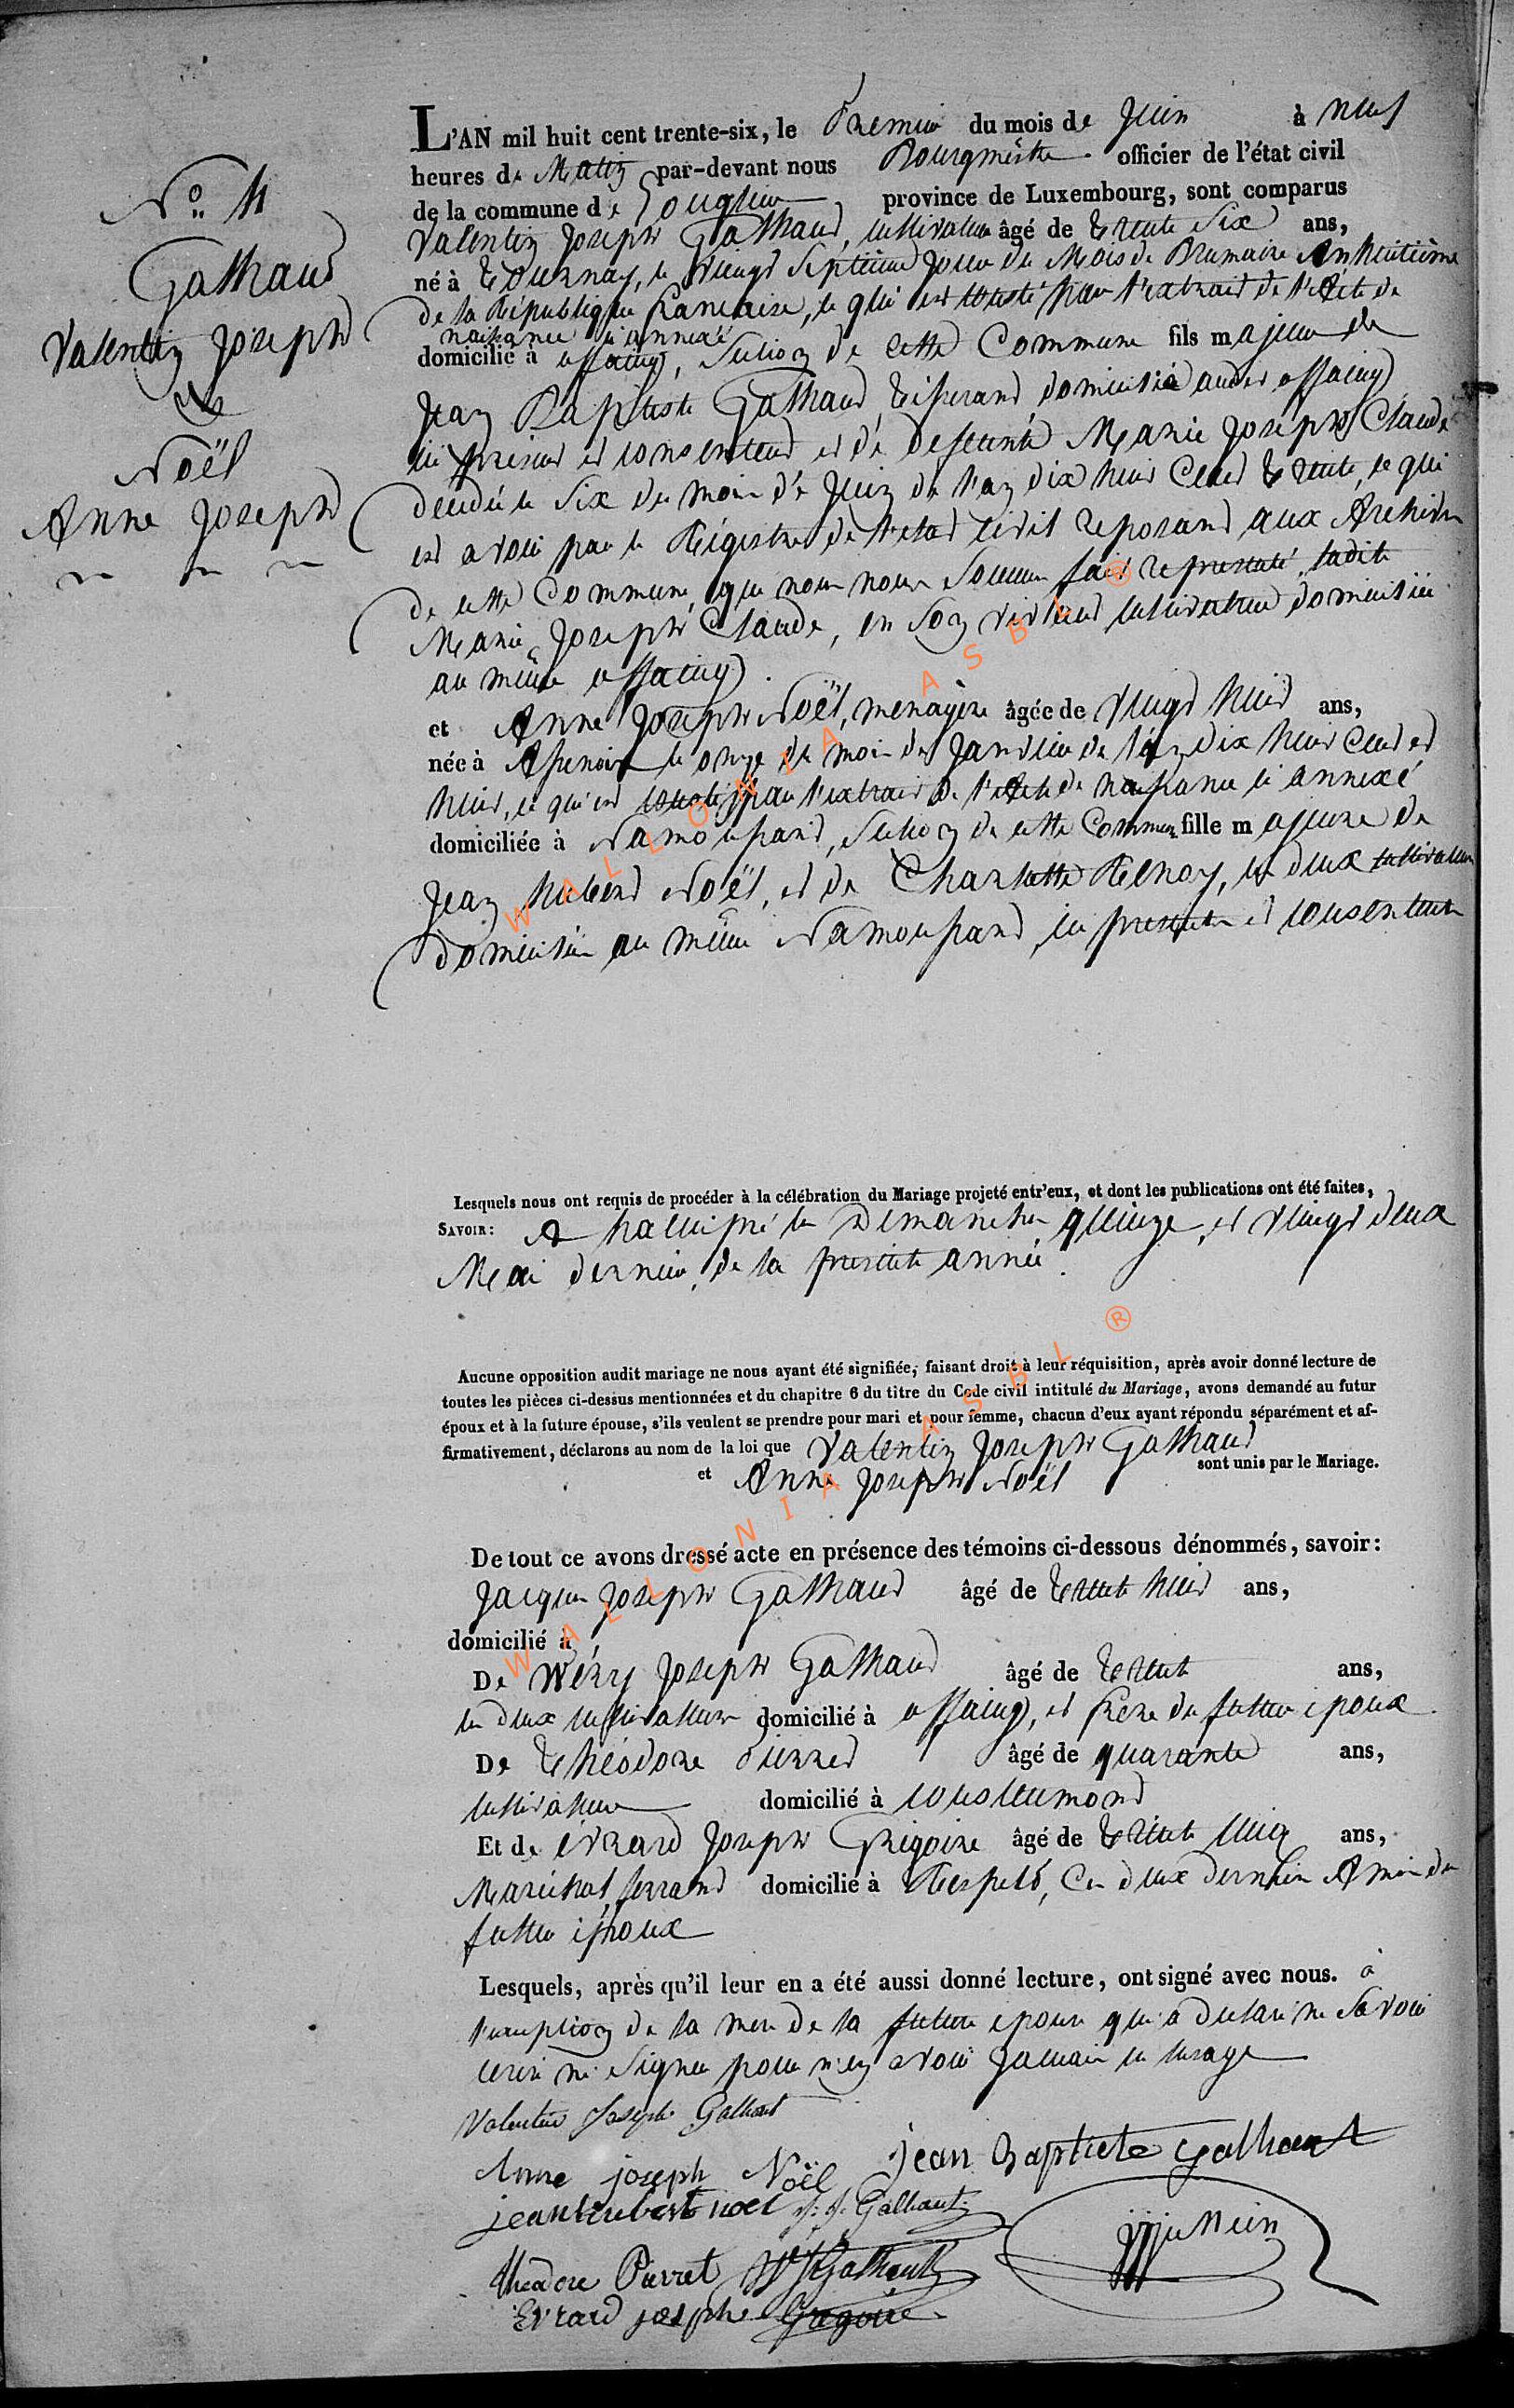 N° 11
Galhaud
Valentin Joseph
&
Noël
Anne Joseph
L'AN mil huit cent trente-six, le Premier du mois de Juin à neuf
heures de Matin par-devant nous Bourgmêstre officier de l'état civil
de la commune de Louglier province de Luxembourg, sont comparus
Valentin Joseph Galhaud, cultivateur âgé de trente Six ans,
né à Tournay, le vingt Septième Jour du Mois de Brumaire An huitième
de la République Française, ce qui est constaté par l'extrait de l'Acte de
naissance ci annexé
domicilié à offaing, Section de cette Commune fils majeur de
Jean Baptiste Galhaud, tisserand, domicilié audit offaing
ici présent et consentent et de deffeunte Marie Joseph Claude
decedée le Six du mois de Juin de l'an dix huit Cent trente, ce qui
est avoué par le Régistre de l'etat civil reposant aux Archives
de cette Commune, que nous nous Sommes fait représenté, ladite
Marie Joseph Claude, en Son vivant cultivatrice domiciliée
au même offaing.
et Anne Joseph Noël, menagère âgée de vingt huit ans,
née à Assenois le onze du mois de Janvier de l'an dix huit Cent et
huit, ce qui est constaté par l'extrait de l'Acte de naissance ci annexé
domiciliée à Namoussart, Section de cette Commune fille majeure de
Jean hubert Noël, et de Charlotte Kelnoy, les deux cultivateurs
domiciliés au même Namoussard, ici présents et consentents
Lesquels nous ont requis de procéder à la célébration du Mariage projeté entr'eux, et dont les publications ont été faites,
SAVOIR: A hallinpré les Dimanches quinze, et vingt deux
Mai dernier, de la presente année.
Aucune opposition audit mariage ne nous ayant été signifiée, faisant droit à leur réquisition, après avoir donné lecture de
toutes les pièces ci-dessus mentionnées et du chapitre 6 du titre du Code civil intitulé du Mariage, avons demandé au futur
époux et à la future épouse, s'ils veulent se prendre pour mari et pour femme, chacun d'eux ayant répondu séparément et af-
firmativement, déclarons au nom de la loi que Valentin Joseph Galhaud
et Anne Joseph Noël sont unis par le Mariage.
De tout ce avons dressé acte en présence des témoins ci-dessous dénommés, savoir:
Jacques Joseph Galhaud âgé de trente huit ans,
domicilié à
De Wéry Joseph Galhaud âgé de trente ans,
les deux cultivateurs domicilié à offaing, et frère du futur epoux.
De théodore Pierret âgé de quarante ans,
cultivateur domicilié à Cousteumont
Et de évrard Joseph Grégoire âgé de trente cinq ans,
Maréchal ferrand domicilié à Respelt, Ces deux derniers Amis du
futur époux
Lesquels, après qu'il leur en a été aussi donné lecture, ont signé avec nous. à
l'exeption de la mere de la future epouse qui a déclaré ne Savoir
ecrire ni Signer pour n'en avoir jamais eu lusage
Valentin Joseph Galhaut
Anne joseph Noël jean Baptiste galhaut
jean hubert noel J. J. Galhaut
Théodore Pierret W J Galhaut
Evrard joseph Gregoire
WALLONIA ASBL ®
WALLONIA ASBL ®